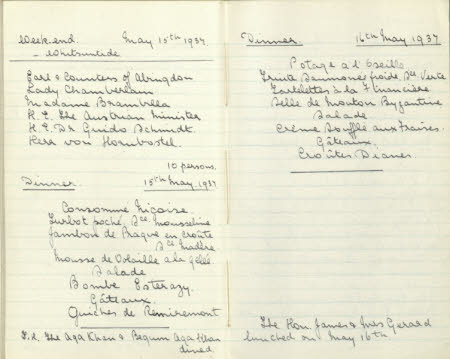 Week-end. May 15th 1937
- Whitsuntide
Earl & Countess of Abingdon
Lady Chamberlain
Madame Brambilla
H.E. The Austrian Minister
H.E. Dr Guido Schmidt
Herr von Hornbostel.
10 persons.
Dinner. 15th May. 1937
Consommé Niçoise.
Turbot poché, Sce. mousseline
Jambon de Prague en croûte
Sce Madère
Mousse de Volaille a la gelée
Salade
Bombe Esterazy.
Gâteaux.
Quiches de Remiremont
T.H. The Aga Khan & Begum Aga Khan
dined
Dinner. 16th May 1937
Potage a l'Oseille
Truite Saumonée froide, Sce Verte
Tartelettes à la Financière
Selle de Mouton Byzantine
Salade
Crème Soufflé aux Fraises.
Gâteaux.
Croûtes Dianes.
The Hon. James & Mrs Gerard
lunched on May 16th